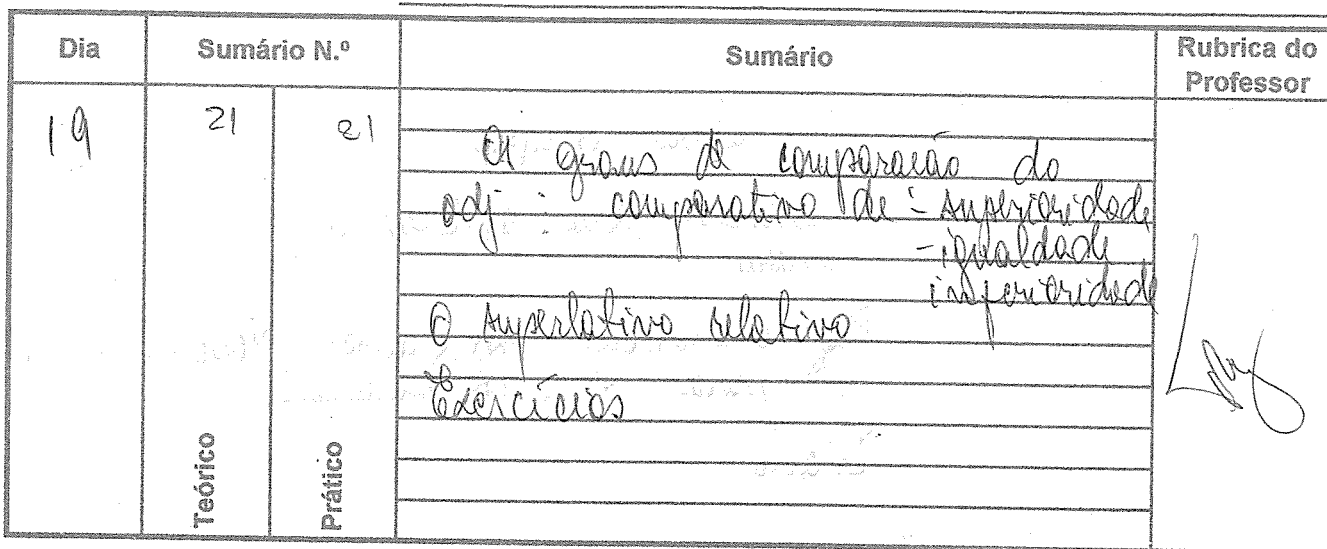 Dia Sumário N.º Sumário Rubrica do Professor
19 21 21
Os graus de comparação do
adj : comparativo de - superioridade
- igualdade
inferioridade
O superlativo relativo
Exercícios
Teórico Prático